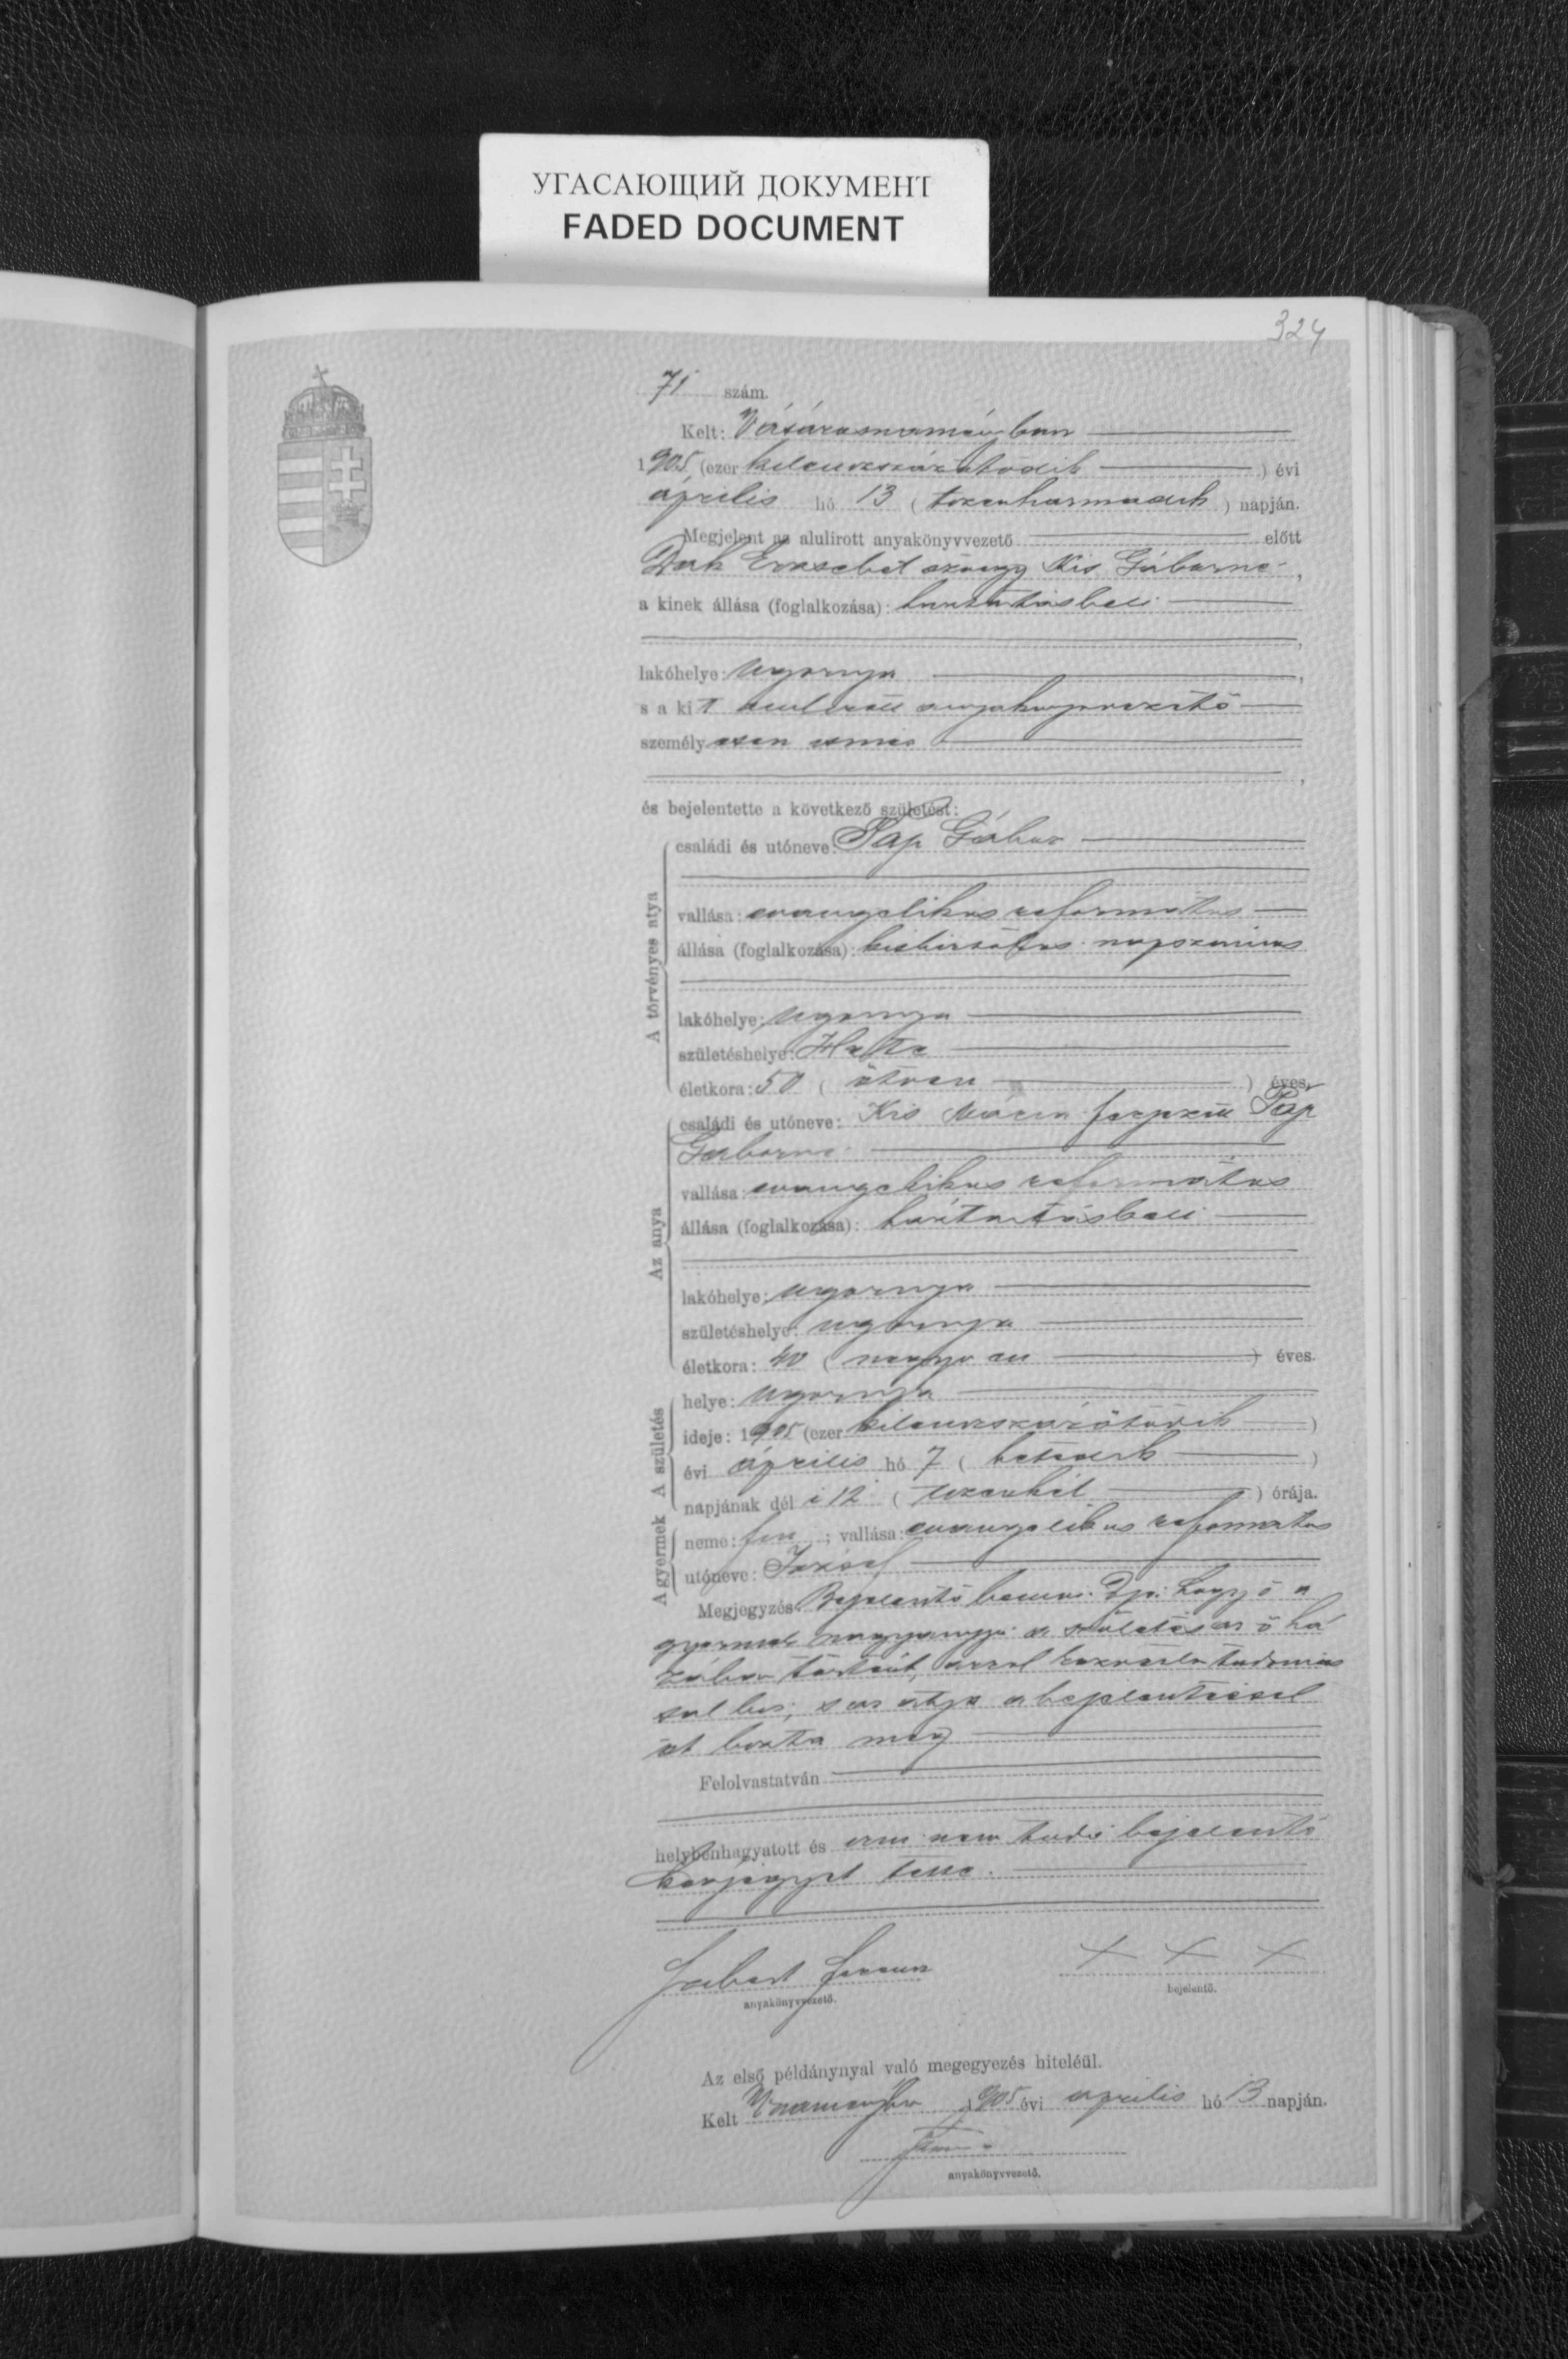 УГАСАЮЩИЙ ДОКУМЕНТ
FADED DOCUMENT
324
71 szám.
Kelt: Vásárosnaményban
1905 (ezer kilenczszázötödik) évi
április hó 13 (tizenharmadik) napján.
Megjelent az alulirott anyakönyvvezető előtt
Erzsebet özvegy Kis Gáborné,
a kinek állása (foglalkozása): háztartásbeli
lakóhelye: Ugornya,
s a kit alulirott anyakönyvvezető
személyesen ismer,
és bejelentette a következő születést:
A törvényes atya
családi és utóneve: Pap Gábor
vallása: evangelikus református
állása (foglalkozása): kisbirtokos napszámos
lakóhelye: Ugornya
születéshelye: Hete
életkora: 50 (ötven) éves.
Az anya
családi és utóneve: Kis Mária férjezett Pap
Gáborné
vallása: evangelikus református
állása (foglalkozása): háztartásbeli
lakóhelye: Ugornya
születéshelye: Ugornya
életkora: 40 (negyven) éves.
A születés
helye: Ugornya
ideje: 1905 (ezer kilenczszázötödik)
évi április hó 7 (hetedik)
napjának déli 12 (tizenkét) órája.
A gyermek
neme: fiu; vallása: evangelikus református
utóneve: József
Megjegyzés: Bejelentő hogy ő a
gyermek nagyanyja a születés az ő há
zában történt, arról közvetlen tudomás
sal bir, s az atya a bejelentéssel
őt bizta meg
Felolvastatván
helybenhagyatott és irni nem tudó bejelentő
kézjegyet tette.
Ferencz
anyakönyvvezető.
× × ×
bejelentő.
Az első példánynyal való megegyezés hiteléül.
Kelt 1905 évi április hó 13 napján.
anyakönyvvezető.